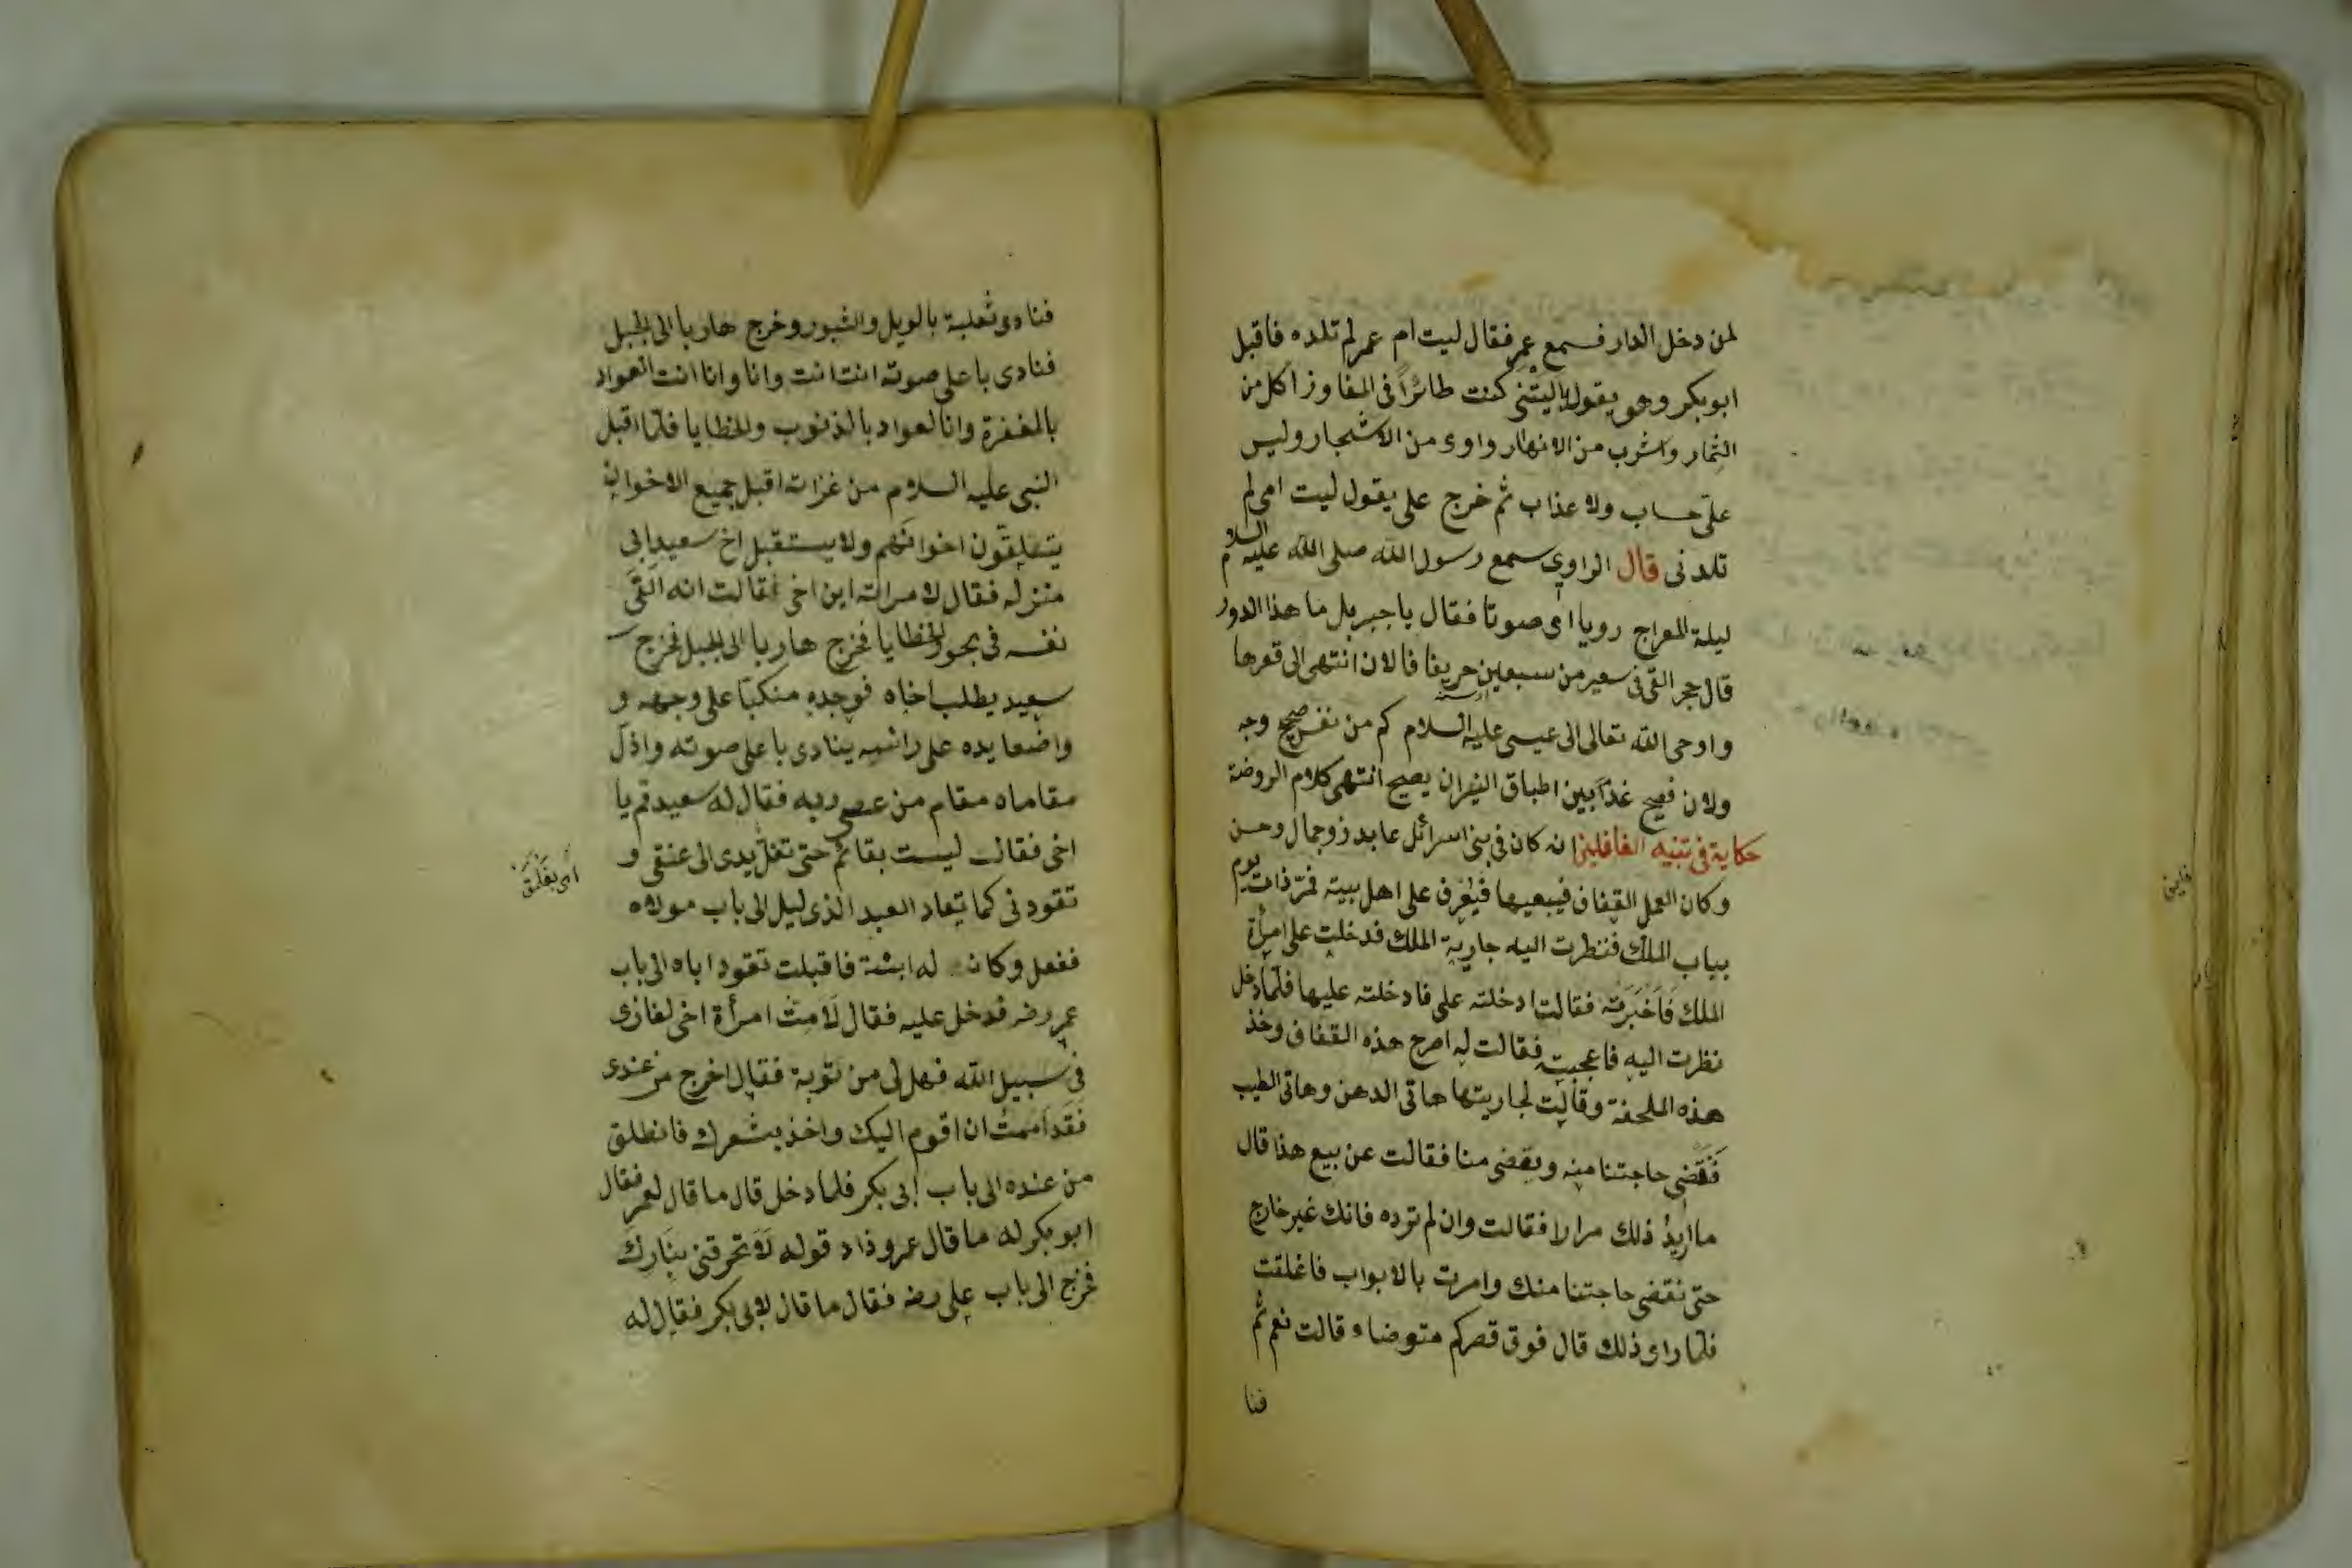 لمن دخل الدار فسمع عمر فقال ليت ام عمر لم تلده فاقبل
ابو بكر وهو يقول يا ليتني كنت طائرا في المفاوز اكل من
الثمار واشرب من الانهار واوى من الاشجار وليس
على حساب ولا عذاب ثم خرج على يقول ليت امى لم
تلدنى قال الراوي سمع رسول الله صلى الله عليه السلام
ليلة المعراج رويا اى صوتا فقال يا جبريل ما هذا الدور
قال حجر القى فى سعير من سبعين خريفا فالان انتهى الى قعرها
واوحى الله تعالى الى عيسى عليه السلام كم من نفس صحيح وجه
ولان فصيح غدا بين اطباق النيران يصيح انتهى كلام الروضة
حكاية فى تنبيه الغافلين انه كان فى بنى اسرائل عابد ذو جمال وحسن
وكان العمل القفاف فيبعيها فيعرف على اهل بيته فمر ذات يوم
بباب الملك فنظرت اليه جارية الملك فدخلت على امرأة
الملك فاخبرته فقالت ادخلته على فادخلته عليها فلما دخل
نظرت اليه فاعجبته فقالت له اصرح هذه القفاف وخذ
هذه الملحفة وقالت لجاريتها هاتى الدهن وهاتى الطيب
فنقضى حاجتنا منه ويقضى منا فقالت عن بيع هذا قال
ما اريد ذلك مرارا فقالت وان لم ترده فانك غير خارج
حتى نقضى حاجتنا منك وامرت بالابواب فاغلقت
فلما راى ذلك قال فوق قصركم متوضاء قالت نعم ثم
فنا
فنادى ثعلبة بالويل والثبور وخرج هاربا الى الجبل
فنادى باعلى صوته انت انت وانا وانا انت العواد
بالمغفرة وانا لعواد بالذنوب والخطايا فلما اقبل
النبى عليه السلام من غزاته اقبل جميع الاخوان
يتلقون اخوانهم ولا يستقبل اخ سعيد الى
منزله فقال لامراته اين اخى فقالت انه القى
نفسه فى بحور الخطايا فخرج هاربا الى الجبل فخرج
سعيد يطلب اخاه فوجده منكبا على وجهه و
واضعا يده على رائسه ينادى باعلى صوته واذل
مقاماه مقام من عصى ربه فقال له سعيد قم يا
اخى فقالت ليست بقائم حتى تغل يدى الى عنقى و
تقودنى كما تعاد العبد الذى ليل الى باب مولاه
ففعل وكان له ابنته فاقبلت تقود اباه الى باب
عمر رضه فدخل عليه فقال لامت امرأة اخى لغازى
فى سبيل الله فهل لى من توبة فقال اخرج من عندى
فقد اممت ان اقوم اليك واخذ بشعرك فانطلق
من عنده الى باب ابى بكر فلما دخل قال ما قال لعمر فقال
ابو بكر له ما قال عمر وذاد قوله لا تحرقنى بنارك
فخرج الى باب على رضه فقال ما قال لابى بكر فقال له